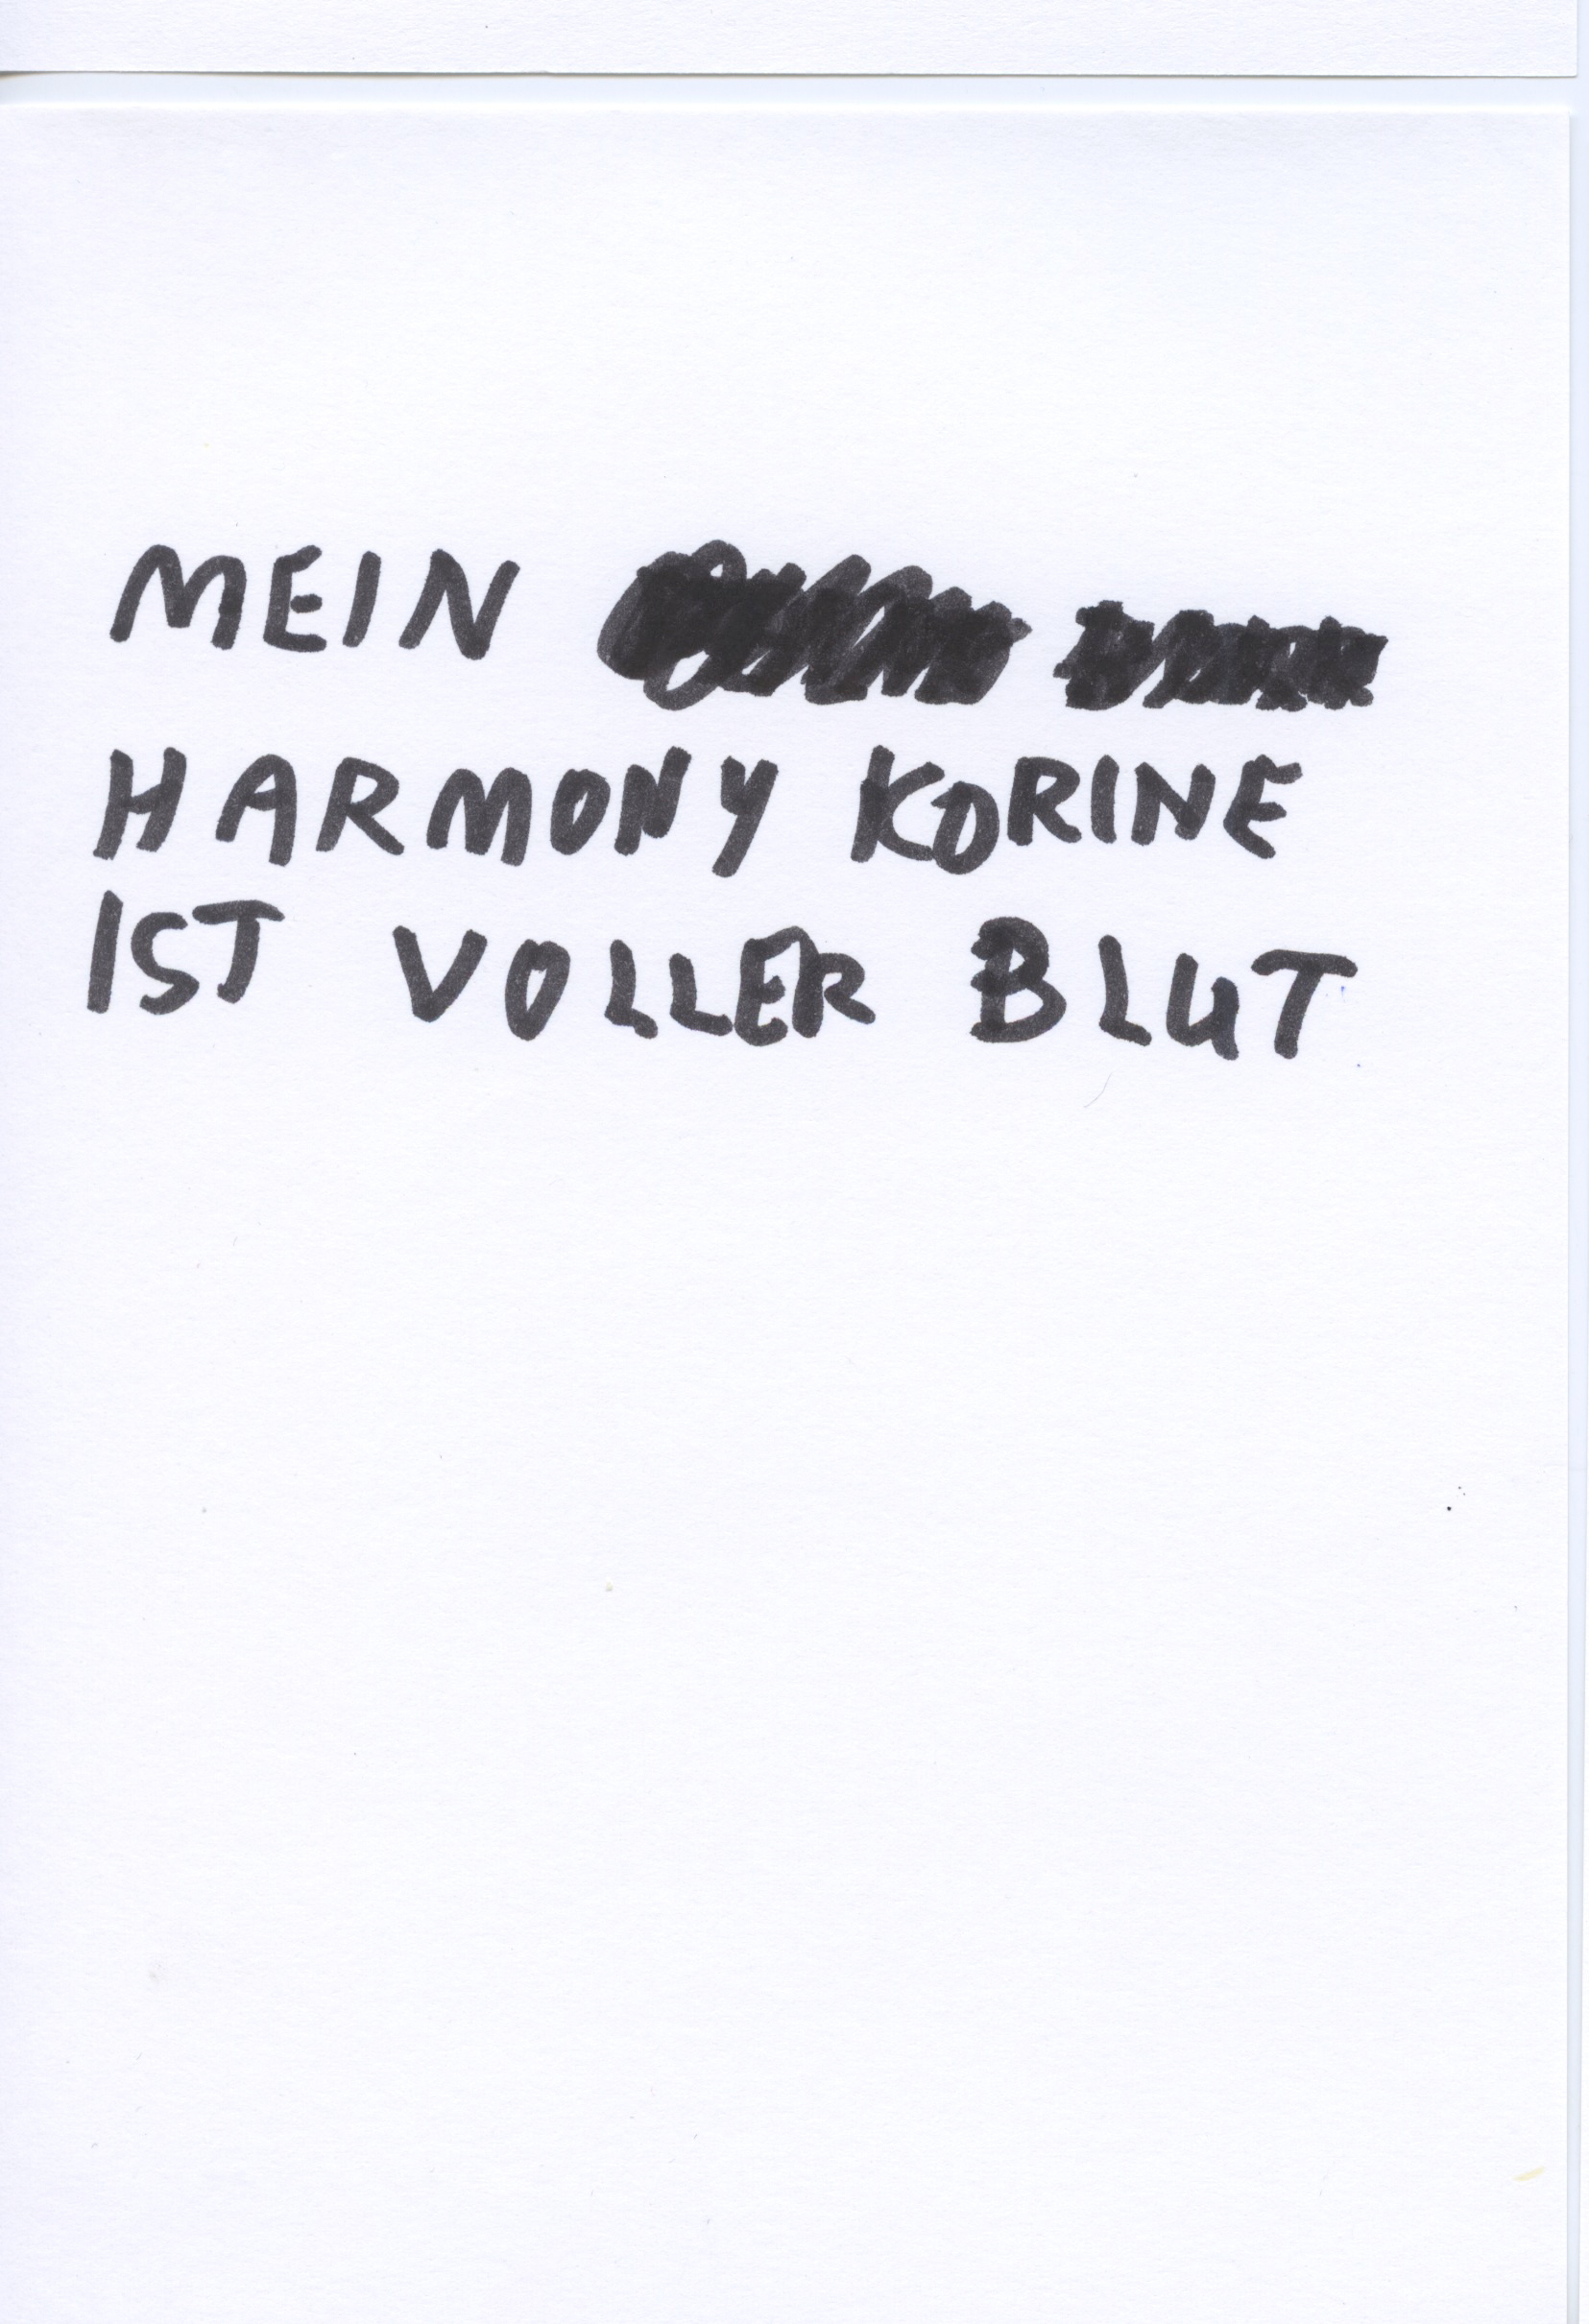 MEIN
HARMONY KORINE
IST VOLLER BLUT